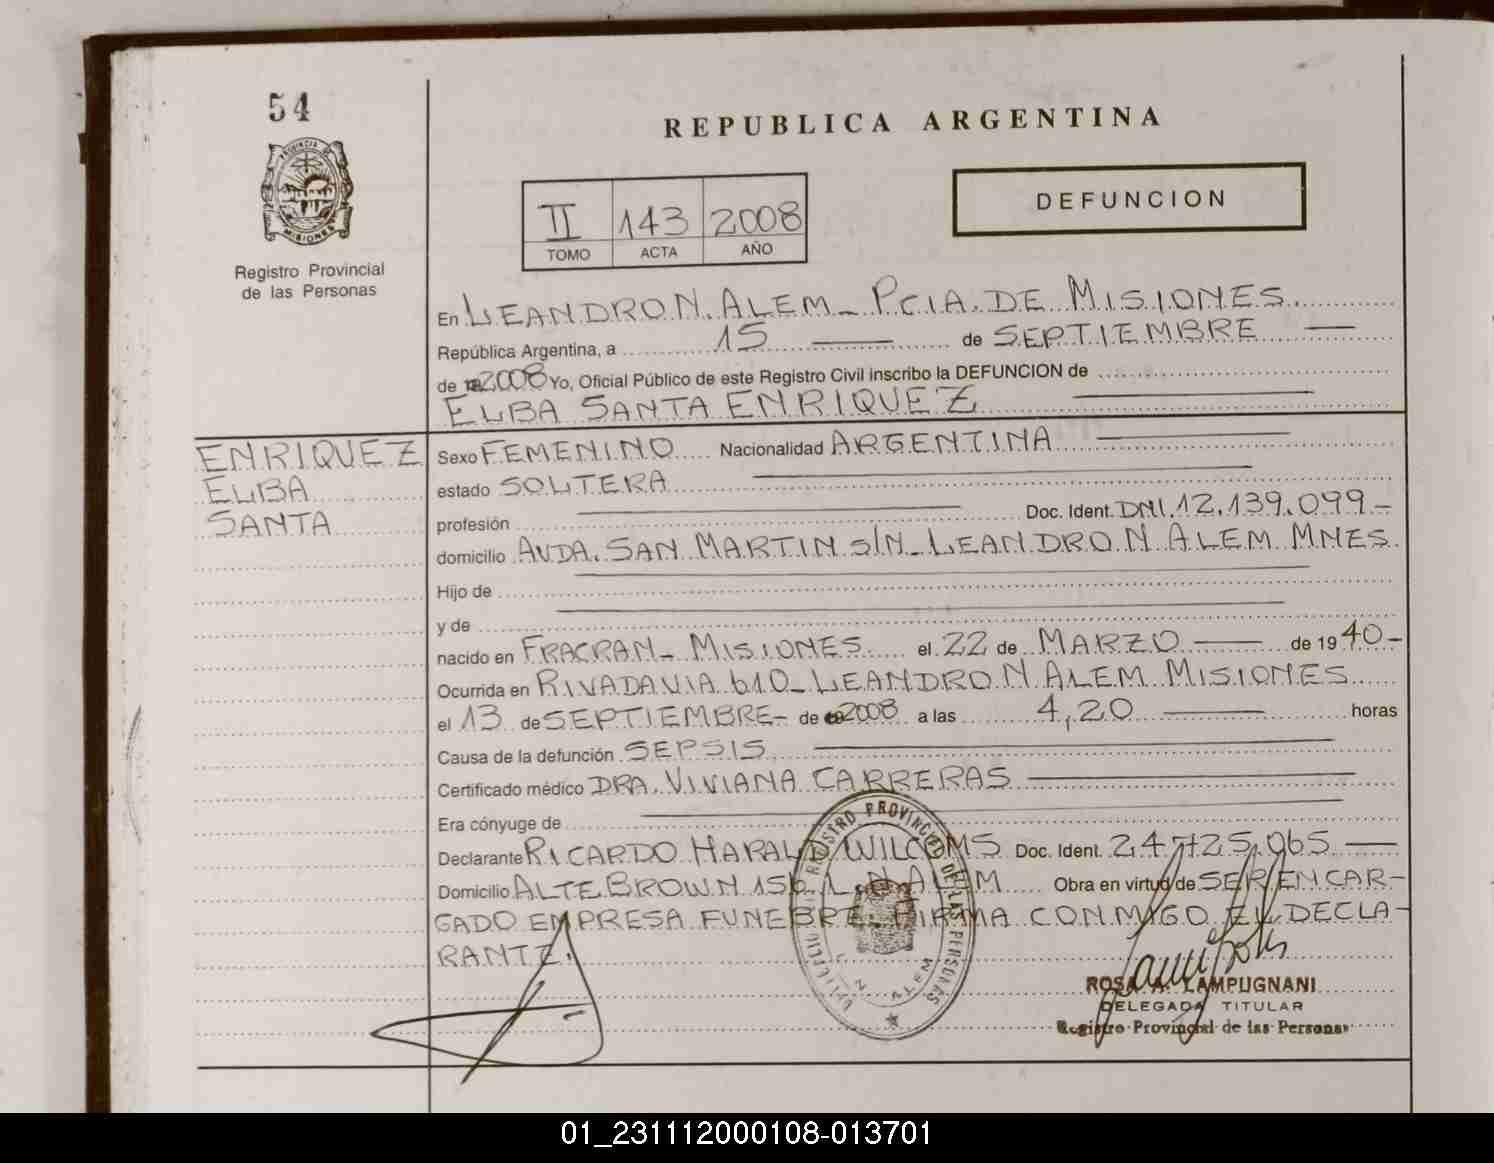 54
REPUBLICA ARGENTINA
PROVINCIA DE
MISIONES
Registro Provincial
de las Personas
DEFUNCION
II 143 2008
TOMO ACTA AÑO
En LEANDRO N. ALEM - PCIA. DE MISIONES
República Argentina, a 15 de SEPTIEMBRE
de 2008 Yo, Oficial Público de este Registro Civil inscribo la DEFUNCION de
ELBA SANTA ENRIQUEZ
ENRIQUEZ
ELBA
SANTA
Sexo FEMENINO Nacionalidad ARGENTINA
estado SOLTERA
profesión Doc. Ident. DNI. 12.139.099.-
domicilio AVDA. SAN MARTIN S/N - LEANDRO N ALEM MNES.
Hijo de
y de
nacido en FRACRAN - MISIONES el 22 de MARZO de 19 40.-
Ocurrida en RIVADAVIA 610 - LEANDRO N ALEM MISIONES
el 13 de SEPTIEMBRE - de 2008 a las 4,20 horas
Causa de la defunción SEPSIS
Certificado médico DRA. VIVIANA CARRERAS
Era cónyuge de
Declarante RICARDO HARALD WILCOMS Doc. Ident. 24.725.065
Domicilio ALTE BROWN 156 L. N ALEM Obra en virtud de SER ENCAR-
GADO EMPRESA FUNEBRE. FIRMA CONMIGO EL DECLA-
RANTE.
REGISTRO PROVINCIAL DE LAS PERSONAS
L. N. ALEM
ROSA A. LAMPUGNANI
DELEGADA TITULAR
Registro Provincial de las Personas
01_231112000108-013701